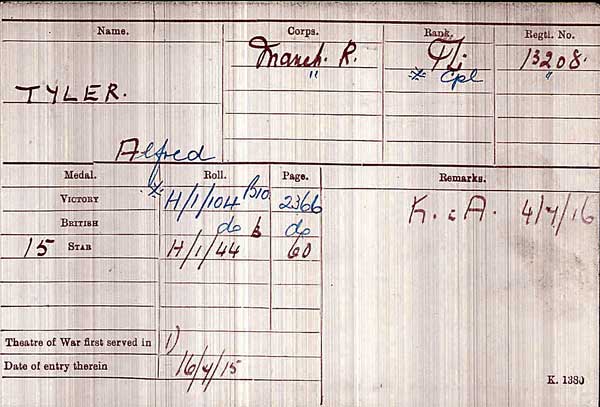 Name. Corps. Rank. Regtl. No.
TYLER. Manch. R. 13208.
" * Cpl "
Alfred
Medal. Roll. Page. Remarks.
VICTORY * H/1/104 B10 2366 K. in A. 4/7/16
BRITISH do do
15 STAR H/1/44 60
Theatre of War first served in 1)
Date of entry therein 16/7/15
K. 1380